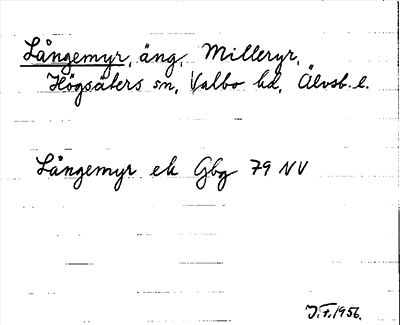 Långemyr, äng, Milleryr,
Högsäters sn, Valbo hd, Älvsb. l.
Långemyr ek Gbg 79 NV
J.F. 1956.